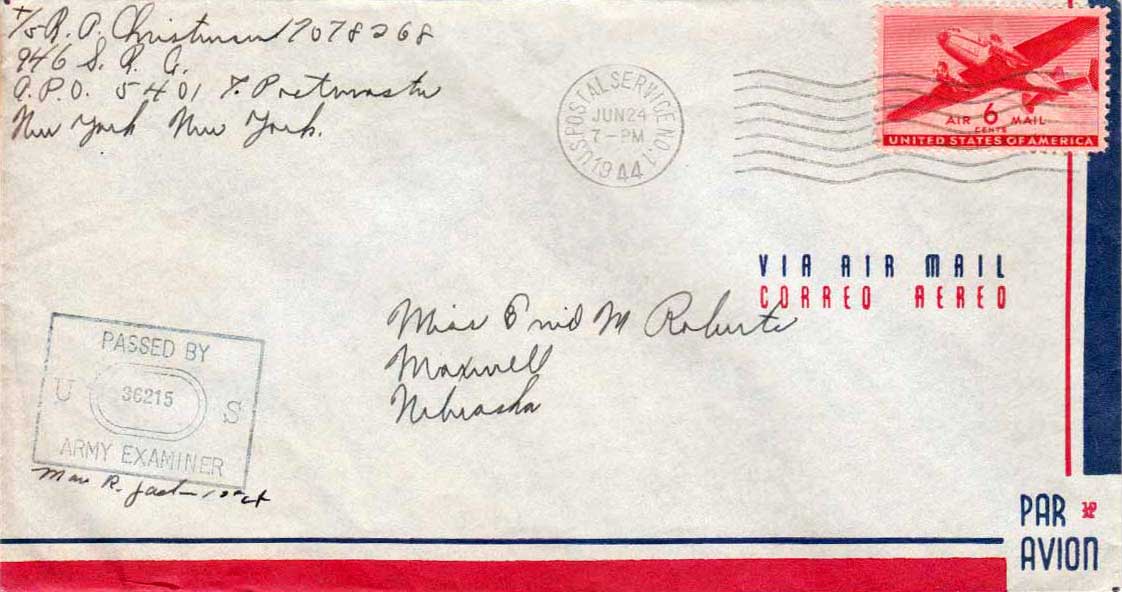 T/5 R. P. Christman 17078268
946 S. R. C.
A.P.O. 5401 % Postmaster
New York New York.
U.S. POSTAL SERVICE NO. 1
JUN 24
7-PM
1944
AIR 6 MAIL
CENTS
UNITED STATES OF AMERICA
VIA AIR MAIL
CORREO AEREO
Miss Enid M Roberts
Maxwell
Nebraska
PASSED BY
U 36215 S
ARMY EXAMINER
R.
PAR
AVION